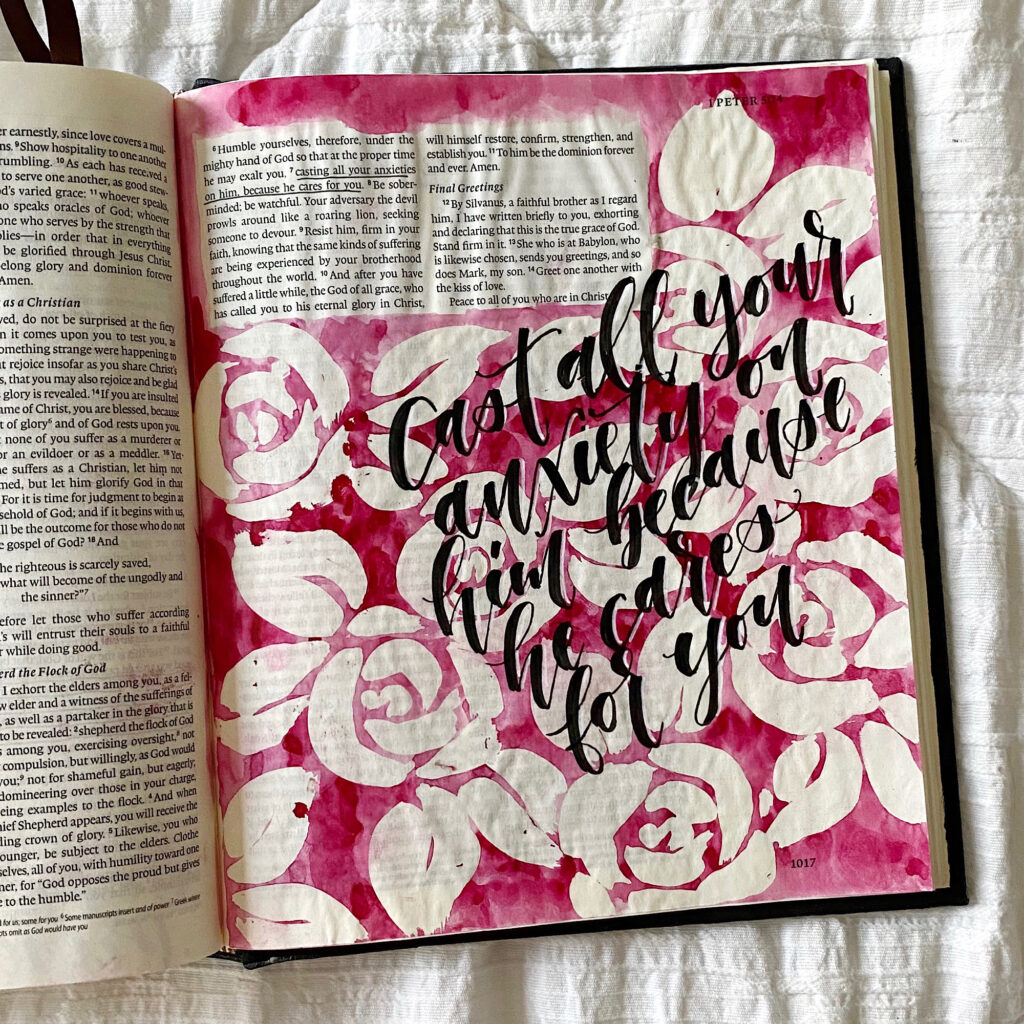 er earnestly, since love covers a mul-
ns. ⁹Show hospitality to one another
rumbling. ¹⁰As each has received a
to serve one another, as good stew-
d's varied grace: ¹¹whoever speaks,
ho speaks oracles of God; whoever
one who serves by the strength that
plies—in order that in everything
be glorified through Jesus Christ.
elong glory and dominion forever
Amen.
as a Christian
ved, do not be surprised at the fiery
n it comes upon you to test you, as
omething strange were happening to
t rejoice insofar as you share Christ's
s, that you may also rejoice and be glad
glory is revealed. ¹⁴If you are insulted
ame of Christ, you are blessed, because
t of glory⁶ and of God rests upon you.
t none of you suffer as a murderer or
or an evildoer or as a meddler. ¹⁶Yet
ne suffers as a Christian, let him not
med, but let him glorify God in that
For it is time for judgment to begin at
sehold of God; and if it begins with us,
ll be the outcome for those who do not
e gospel of God? ¹⁸And
he righteous is scarcely saved,
what will become of the ungodly and
the sinner?"⁷
efore let those who suffer according
's will entrust their souls to a faithful
r while doing good.
erd the Flock of God
I exhort the elders among you, as a fel-
w elder and a witness of the sufferings of
, as well as a partaker in the glory that is
to be revealed: ²shepherd the flock of God
s among you, exercising oversight,⁸ not
compulsion, but willingly, as God would
you;⁹ not for shameful gain, but eagerly;
domineering over those in your charge,
eing examples to the flock. ⁴And when
hief Shepherd appears, you will receive the
ding crown of glory. ⁵Likewise, you who
ounger, be subject to the elders. Clothe
selves, all of you, with humility toward one
her, for "God opposes the proud but gives
e to the humble."
for us; some for you ⁶Some manuscripts insert and of power ⁷Greek where
pts omit as God would have you
1 PETER
⁶Humble yourselves, therefore, under the
mighty hand of God so that at the proper time
he may exalt you. ⁷casting all your anxieties
on him, because he cares for you. ⁸Be sober-
minded; be watchful. Your adversary the devil
prowls around like a roaring lion, seeking
someone to devour. ⁹Resist him, firm in your
faith, knowing that the same kinds of suffering
are being experienced by your brotherhood
throughout the world. ¹⁰And after you have
suffered a little while, the God of all grace, who
has called you to his eternal glory in Christ,
will himself restore, confirm, strengthen, and
establish you. ¹¹To him be the dominion forever
and ever. Amen.
Final Greetings
¹²By Silvanus, a faithful brother as I regard
him, I have written briefly to you, exhorting
and declaring that this is the true grace of God.
Stand firm in it. ¹³She who is at Babylon, who
is likewise chosen, sends you greetings, and so
does Mark, my son. ¹⁴Greet one another with
the kiss of love.
Peace to all of you who are in Christ
Cast all your
anxiety on
him because
he cares
for you
1017